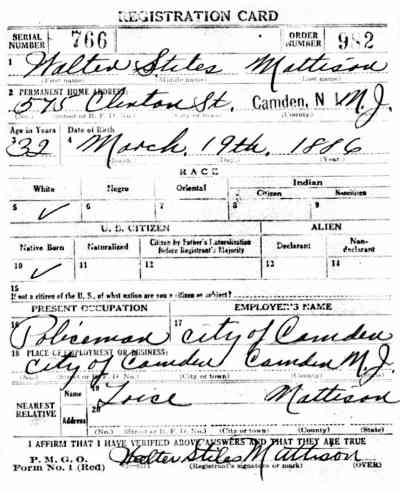 REGISTRATION CARD
SERIAL NUMBER 766 ORDER NUMBER 982
1 Walter Stiles Mattison
(First name) (Middle name) (Last name)
2 PERMANENT HOME ADDRESS:
575 Clinton St. Camden, N. J.
(No.) (Street or R. F. D. No.) (City or town) (County)
Age in Years Date of Birth
3 32 4 March 19th 1886
(Month) (Day) (Year)
RACE
White Negro Oriental Indian
Citizen Noncitizen
5 ✓ 6 7 8 9
U. S. CITIZEN ALIEN
Native Born Naturalized Citizen by Father's Naturalization Before Registrant's Majority Declarant Non-declarant
10 ✓ 11 12 13 14
15
If not a citizen of the U. S., of what nation are you a citizen or subject?
PRESENT OCCUPATION EMPLOYER'S NAME
16 Policeman 17 City of Camden
18 PLACE OF EMPLOYMENT OR BUSINESS:
City of Camden Camden N.J.
(No.) (Street or R. F. D. No.) (City or town) (County)
NEAREST RELATIVE Name 19 Mattison
Address 20
(No.) (Street or R. F. D. No.) (City or town) (County) (State)
I AFFIRM THAT I HAVE VERIFIED ABOVE ANSWERS AND THAT THEY ARE TRUE
P. M. G. O. Walter Stiles Mattison
Form No. 1 (Red) (Registrant's signature or mark) (OVER)